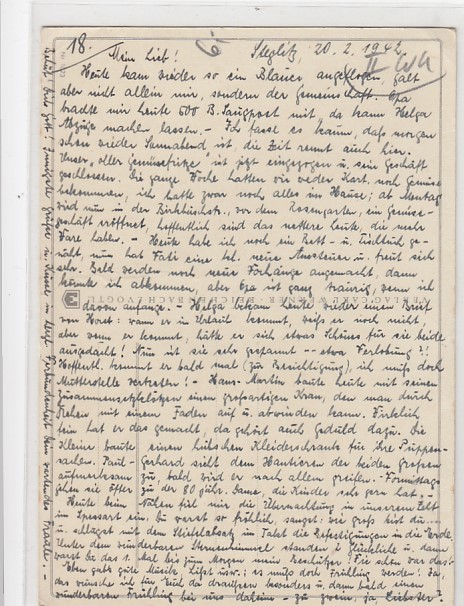 18. Mein Lieb! Steglitz, 20.2.1942
II WK
Heute kam wieder so ein Blauer angeflogen, galt
aber nicht allein mir, sondern der Gemeinschaft. Opa
brachte mir heute 500 B. Saugpost mit, da kann Helga
Abzüge machen lassen. - Ich fasse es kaum, daß morgen
schon wieder Sonnabend ist, die Zeit rennt auch hier.
Unser "oller Gemüsefritze" ist jetzt eingezogen u. sein Geschäft
geschlossen. Die ganze Woche hatten wir weder Kart. noch Gemüse
bekommen, ich hatte zwar noch alles im Hause; ab Montag
wird nun in der Birkbuschstr., vor dem Rosengarten, ein Gemüse-
geschäft eröffnet, hoffentlich sind das nettere Leute, die mehr
Ware haben. - Heute habe ich noch ein Bett- u. Tischtuch ge-
näht, nun hat Fati eine kl. neue Aussteuer u. freut sich
sehr. Bald werden noch neue Vorhänge angemacht, dann
könnte ich abkommen, aber Opa ist ganz traurig, wenn ich
davon anfange. - Helga bekam heute wieder einen Brief
von Horst: wann er in Urlaub kommt, weiß er noch nicht,
aber wenn er kommt, hätte er sich etwas Schönes für sie beide
ausgedacht! Nun ist sie sehr gespannt -- etwa Verlobung?!
Hoffentl. kommt er bald mal (zur Besichtigung), ich muß doch
Mutterstelle vertreten! - Hans-Martin baute heute mit seinen
Zusammensetzklötzen einen großartigen Kran, den man durch
Drehen mit einem Faden auf u. abwinden kann. Wirklich
fein hat er das gemacht, da gehört auch Geduld dazu. Die
Kleine baute einen hübschen Kleiderschrank für ihre Puppen-
sachen. Paul-Gerhard sieht dem Hantieren der beiden Großen
aufmerksam zu, bald wird er nach allem greifen. - Vormittags
gehen sie öfter zu der 80 jähr. Dame, die Kinder sehr gern hat. -
Heute beim Nähen fiel mir die Übernachtung in unserem Zelt
im Spessart ein. Du warst so fröhlich, sangst: wie groß bist du...
u. schlugst mit dem Stiefelabsatz im Takt die Befestigungen in die Erde.
Unter dem wunderbaren Sternenhimmel standen 2 Glückliche u. dann
warst du das 1. Mal bis zum Morgen mein Beschützer! Wie schön war das!
Eben gab's gute Musik: es muß doch Frühling werden! Ja,
das wünsche ich für Euch da draußen besonders u. dann bald einen
wunderbaren Frühling bei uns daheim - zu zweien, ja Liebster?
VERLAG CARL WERNER, REICHENBACH (VOGTL)